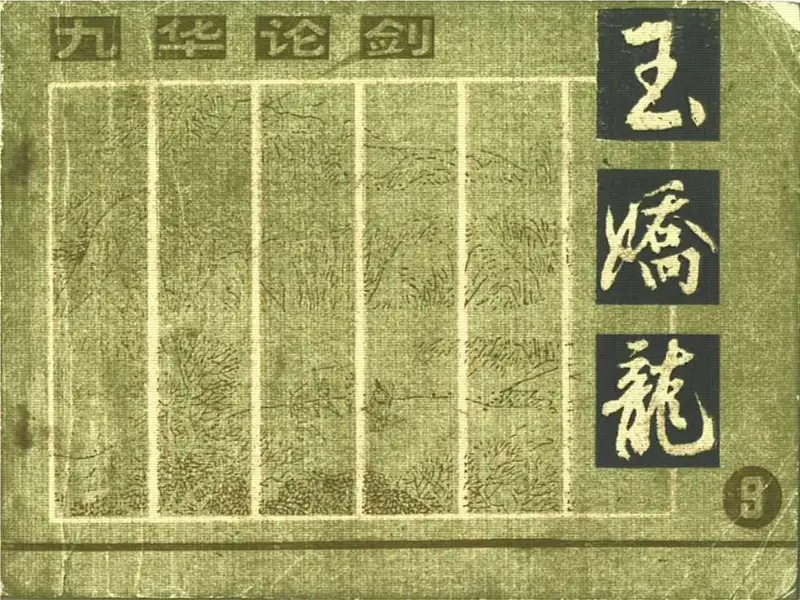 九华论剑
玉
嬌
龍
9